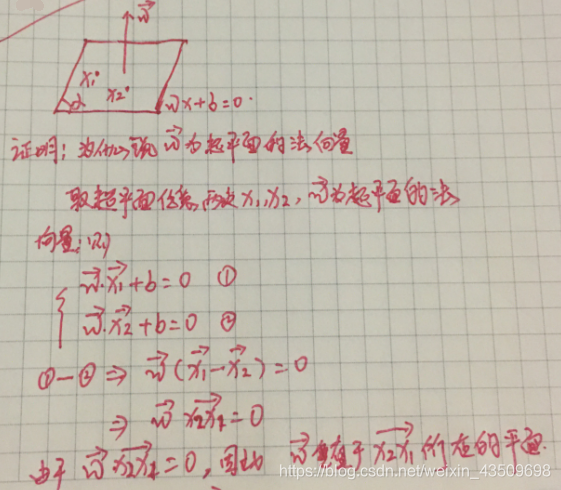 w⃗
x₁
x₂
α
w⃗x+b=0.
证明: 为什么说 w⃗ 为超平面的法向量
取超平面任意两点 x₁, x₂, w⃗为超平面的法
向量, 则
w⃗·x₁⃗+b=0 ①
w⃗·x₂⃗+b=0 ②
①-② ⇒ w⃗(x₁⃗-x₂⃗)=0
⇒ w⃗ x₂x₁⃗=0
由于 w⃗·x₂x₁⃗=0, 因此 w⃗垂直于 x₂x₁⃗ 所在的平面.
https://blog.csdn.net/weixin_43509698